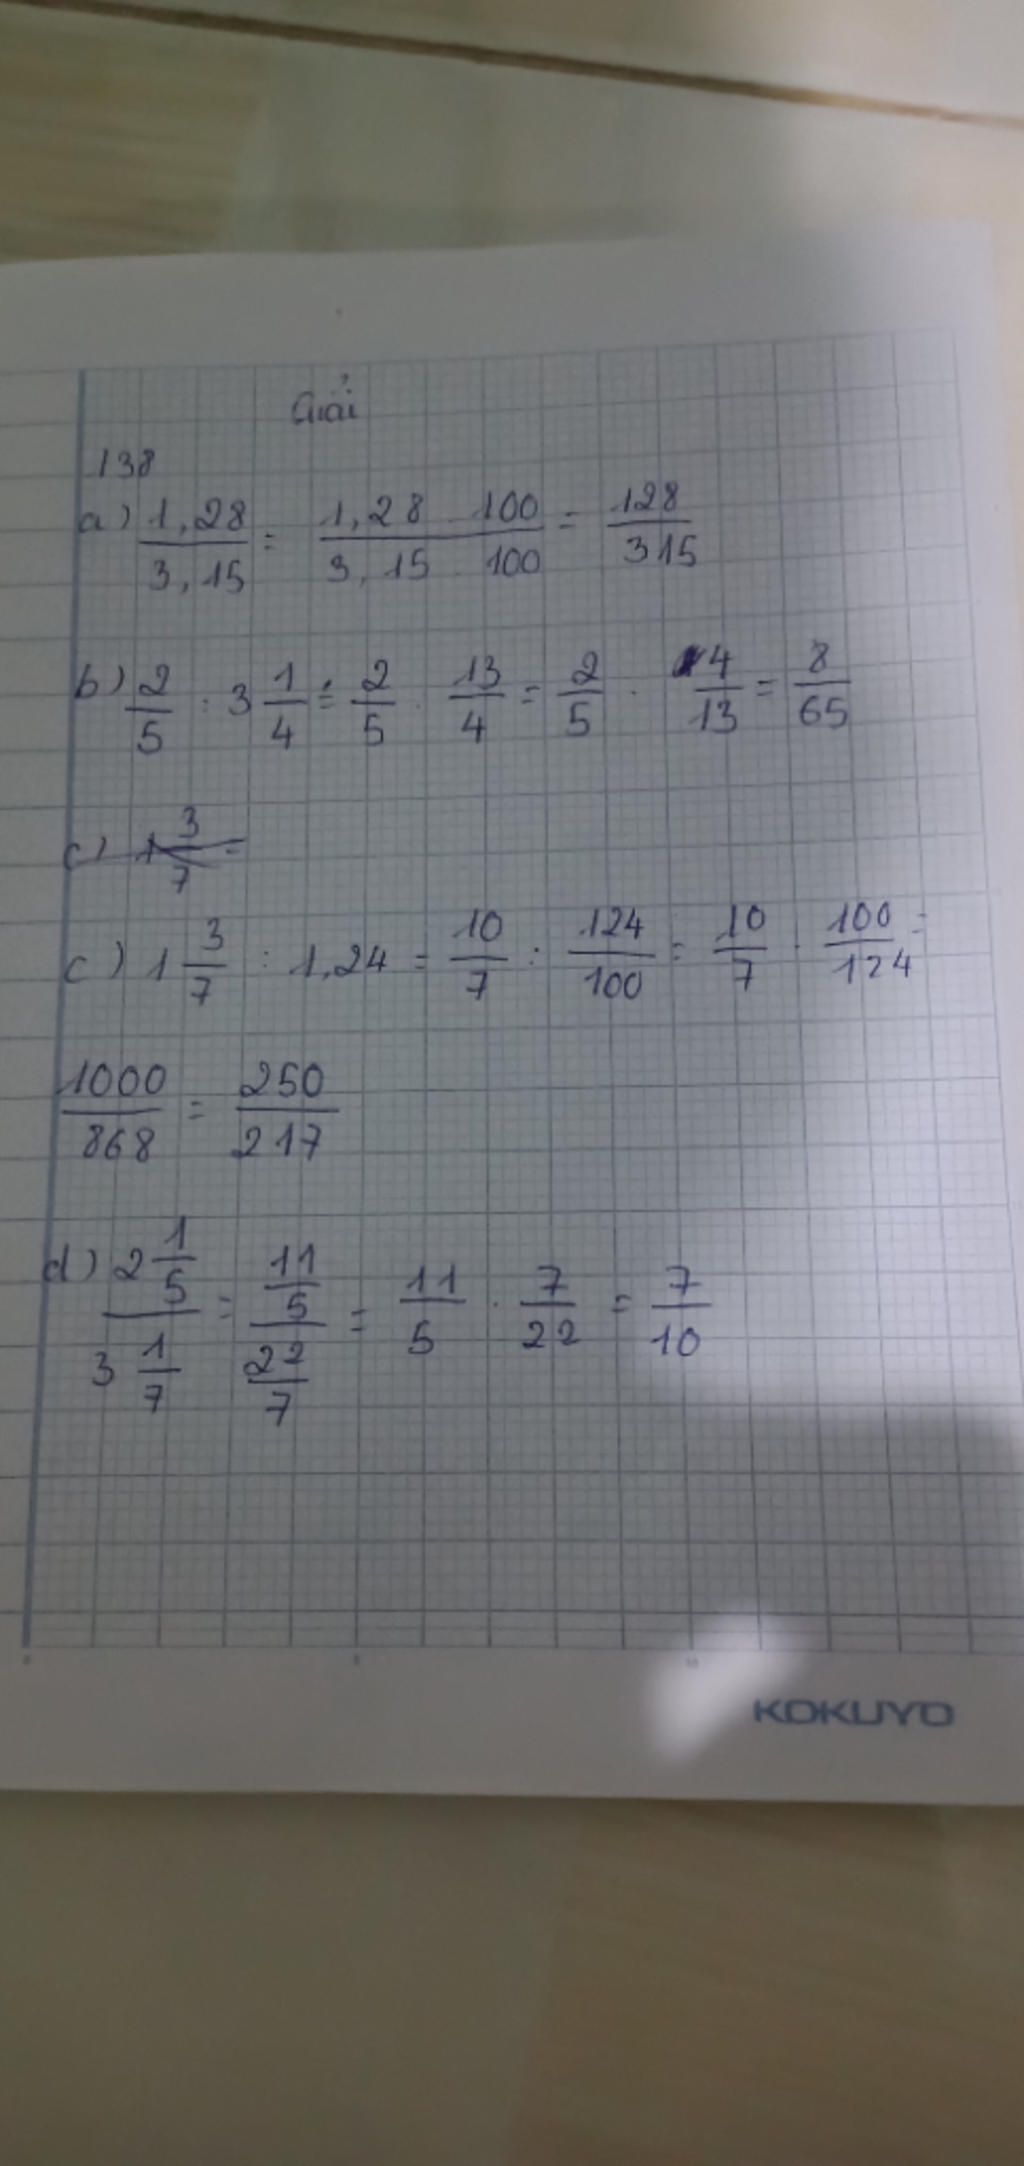 Giải
138
a) 1,28/3,15 = 1,28 . 100/3,15 . 100 = 128/315
b) 2/5 : 3 1/4 = 2/5 . 13/4 = 2/5 . 4/13 = 8/65
c) 1 3/7 =
c) 1 3/7 : 1,24 = 10/7 : 124/100 = 10/7 . 100/124 =
1000/868 = 250/217
d) 2 1/5 / 3 1/7 = 11/5 / 22/7 = 11/5 . 7/22 = 7/10
KOKUYO